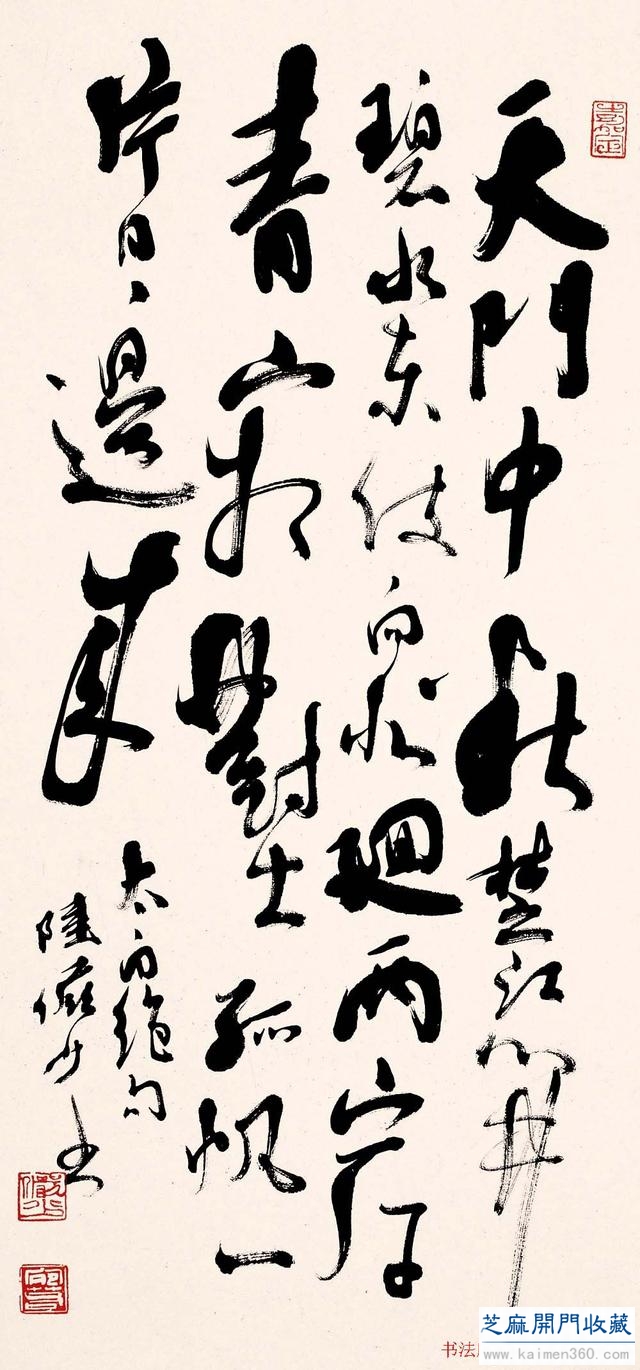 嘉定
天門中斷楚江開
碧水東流向北廻兩岸
青山相對出孤帆一
片日邊來
太白絕句
陸儼少書
書法
芝麻開門收藏
www.kaimen360.com